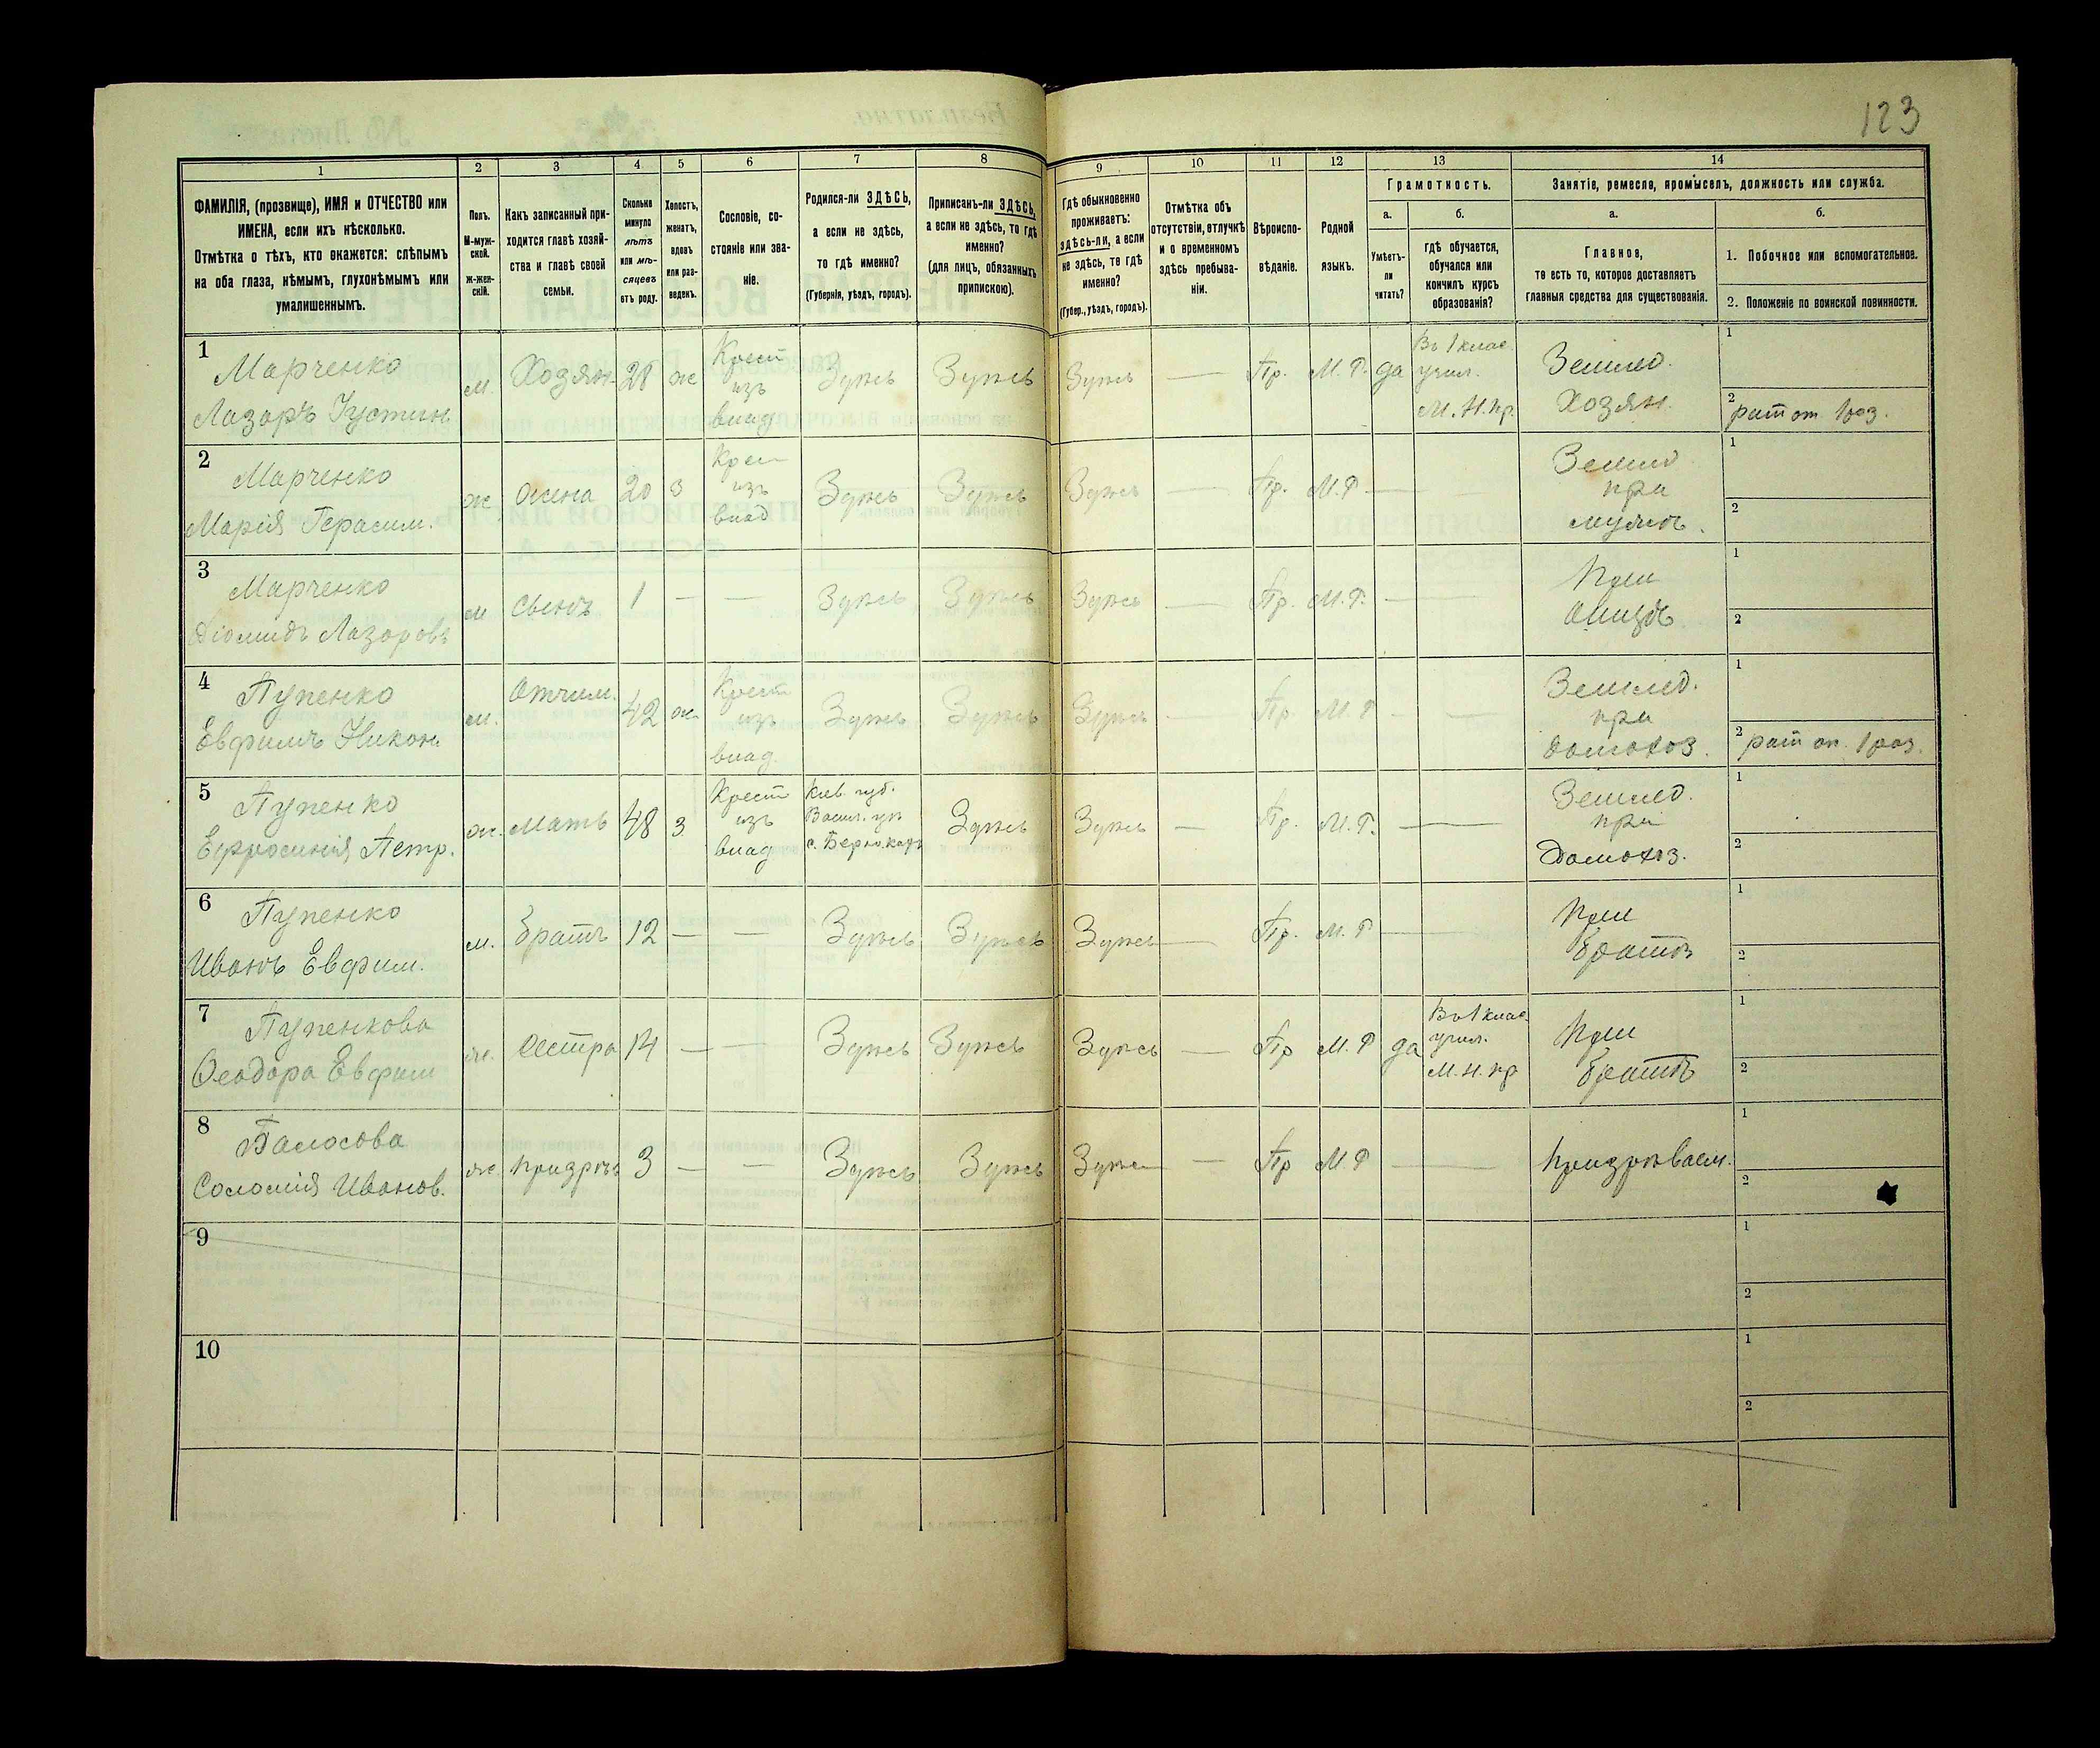 123
1
2
3
4
5
6
7
8
9
10
11
12
13
14
ФАМИЛІЯ, (прозвище), ИМЯ и ОТЧЕСТВО или
ИМЕНА, если ихъ нѣсколько.
Отмѣтка о тѣхъ, кто окажется: слѣпымъ
на оба глаза, нѣмымъ, глухонѣмымъ или
умалишеннымъ.
Полъ.
М-муж-
ской.
Ж-жен-
скій.
Какъ записанный при-
ходится главѣ хозяй-
ства и главѣ своей
семьи.
Сколько
минуло
лѣтъ
или мѣ-
сяцевъ
отъ роду.
Холостъ,
женатъ,
вдовъ
или раз-
веденъ.
Сословіе, со-
стояніе или зва-
ніе.
Родился-ли ЗДѢСЬ,
а если не здѣсь,
то гдѣ именно?
(Губернія, уѣздъ, городъ).
Приписанъ-ли ЗДѢСЬ,
а если не здѣсь, то гдѣ
именно?
(для лицъ, обязанныхъ
припискою).
Гдѣ обыкновенно
проживаетъ:
здѣсь-ли, а если
не здѣсь, то гдѣ
именно?
(Губер., уѣздъ, городъ).
Отмѣтка объ
отсутствіи, отлучкѣ
и о временномъ
здѣсь пребыва-
ніи.
Вѣроиспо-
вѣданіе.
Родной
языкъ.
Грамотность.
а.
б.
Умѣетъ-
ли
читать?
гдѣ обучается,
обучался или
кончилъ курсъ
образованія?
Занятіе, ремесло, промыселъ, должность или служба.
а.
б.
Главное,
то есть то, которое доставляетъ
главныя средства для существованія.
1. Побочное или вспомогательное.
2. Положеніе по воинской повинности.
1
Марченко
Лазаръ Іустин
м.
Хозяин
28
ж
Крест
изъ
влад
Здѣсь
Здѣсь
Здѣсь
—
Пр.
М. Р.
да
Въ 1 клас
учил.
М. Н. пр.
Землед.
Хозян.
1
2
рат оп 1 раз.
2
Марченко
Марія Герасим.
ж
жена
20
з
Крес
изъ
влад
Здѣсь
Здѣсь
Здѣсь
—
Пр.
М. Р
—
—
Землед
при
мужѣ.
1
2
3
Марченко
Діомидъ Лазоровъ
м
сынъ
1
—
—
Здѣсь
Здѣсь
Здѣсь
—
Пр.
М. Р.
—
—
При
Отцѣ
1
2
4
Пупенко
Евфимъ Никон.
м.
Отчим.
42
ж
Крест
изъ
влад
Здѣсь
Здѣсь
Здѣсь
—
Пр
М Р
—
—
Землед.
при
домохоз.
1
2
рат оп. 1 раз.
5
Пупенко
Ефросинія Петр.
ж.
Мать
48
з
Крест
изъ
влад
Кіев. губ.
Васил. уѣ
Здѣсь
Здѣсь
—
Пр.
М. Р.
—
Землед.
при
Домохоз.
1
2
6
Пупенко
Иванъ Евфим.
м.
братъ
12
—
—
Здѣсь
Здѣсь
Здѣсь
—
Пр.
М. Р
—
—
При
братѣ
1
2
7
Пупенкова
Ѳеодора Евфим
ж.
Сестра
14
—
—
Здѣсь
Здѣсь
Здѣсь
—
Пр
М. Р
да
Въ 1 клас.
учил.
М. Н. пр
При
братѣ
1
2
8
Соломія Иванов.
ж
призрѣв
3
—
—
Здѣсь
Здѣсь
Здѣсь
—
Пр
М. Р
—
—
Призрѣваем.
1
2
9
1
2
10
1
2